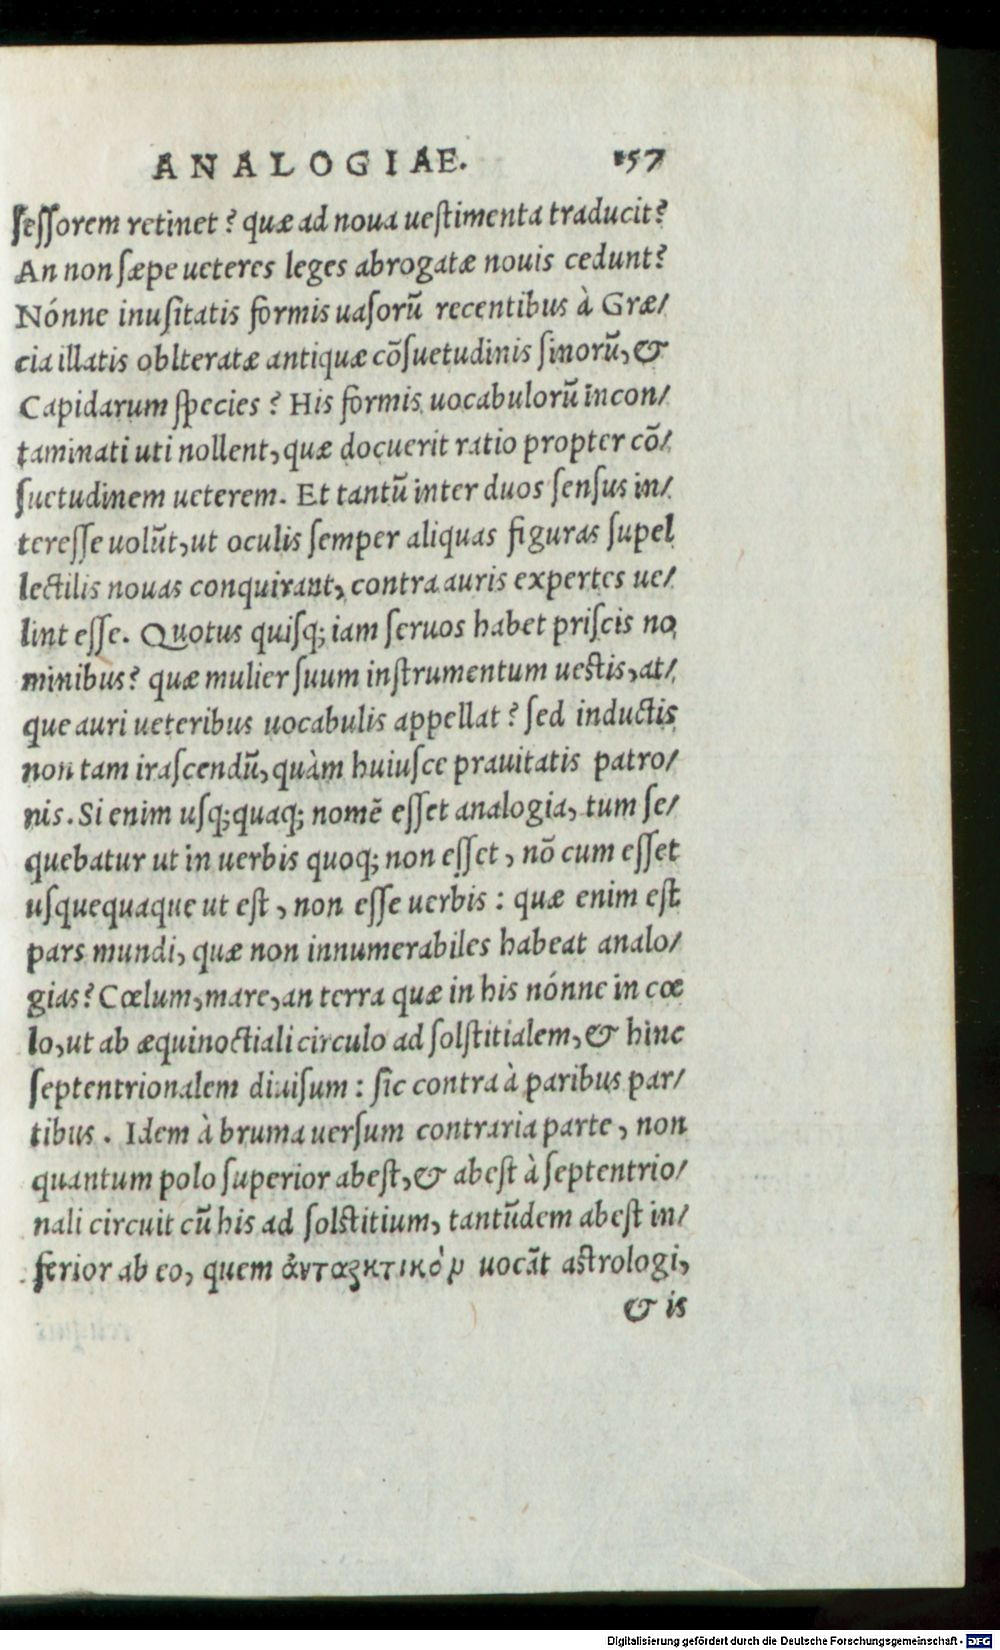 ANALOGIAE. 157
ſeſſorem retinet? quæ ad noua ueſtimenta traducit?
An non ſæpe ueteres leges abrogatæ nouis cedunt?
Nónne inuſitatis formis uaſorũ recentibus à Græ/
cia illatis oblteratæ antiquæ cõſuetudinis ſinorũ, &
Capidarum ſpecies? His formis uocabulorũ incon/
taminati uti nollent, quæ docuerit ratio propter cõ/
ſuetudinem ueterem. Et tantũ inter duos ſenſus in/
tereſſe uolũt, ut oculis ſemper aliquas figuras ſupel
lectilis nouas conquirant, contra auris expertes ue/
lint eſſe. Quotus quiſq; iam ſeruos habet priſcis no
minibus? quæ mulier ſuum inſtrumentum ueſtis, at/
que auri ueteribus uocabulis appellat? ſed inductis
non tam iraſcendũ, quàm huiuſce prauitatis patro/
nis. Si enim uſq;quaq; nomẽ eſſet analogia, tum ſe/
quebatur ut in uerbis quoq; non eſſet, nõ cum eſſet
uſquequaque ut eſt, non eſſe uerbis: quæ enim eſt
pars mundi, quæ non innumerabiles habeat analo/
gias? Cœlum, mare, an terra quæ in his nónne in cœ
lo, ut ab æquinoctiali circulo ad ſolſtitialem, & hinc
ſeptentrionalem diuiſum: ſic contra à paribus par/
tibus. Idem à bruma uerſum contraria parte, non
quantum polo ſuperior abeſt, & abeſt à ſeptentrio/
nali circuit cũ his ad ſolſtitium, tantũdem abeſt in/
ferior ab eo, quem ἀνταρκτικὸν uocãt aſtrologi,
& is
Digitalisierung gefördert durch die Deutsche Forschungsgemeinschaft - DFG